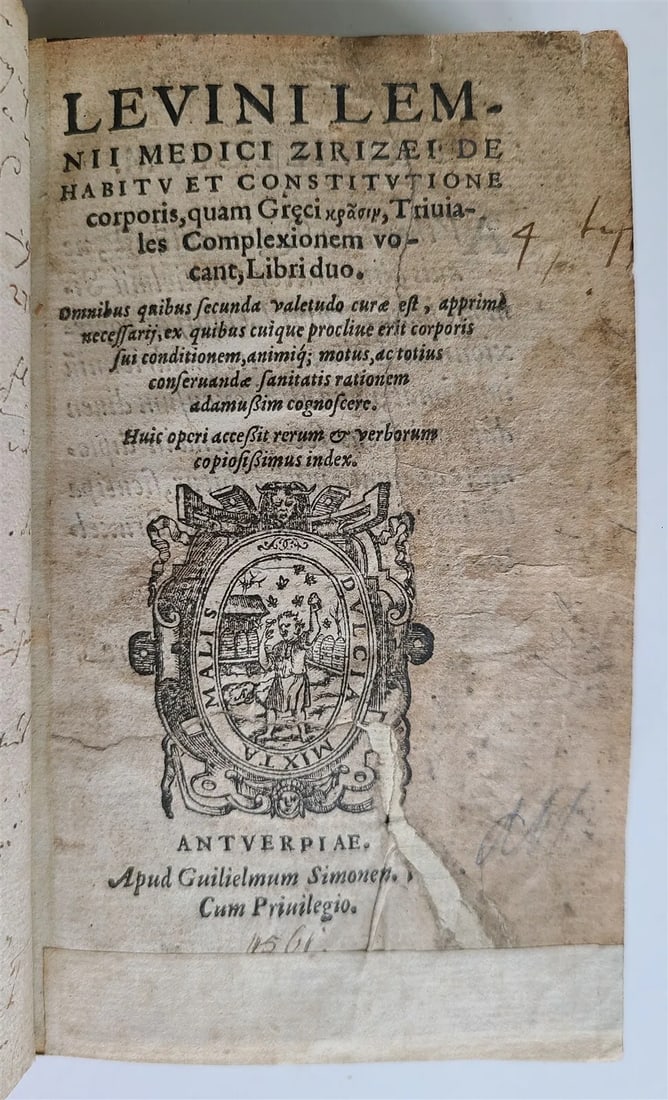 LEVINI LEM-
NII MEDICI ZIRIZÆI DE
HABITV ET CONSTITVTIONE
corporis, quam Gręci κρᾶσιν, Triuia-
les Complexionem vo-
cant, Libri duo.
Omnibus quibus ſecunda valetudo curæ eſt, apprimè
neceſſarij, ex quibus cuique procliue erit corporis
ſui conditionem, animiq́; motus, ac totius
conſeruandæ ſanitatis rationem
adamußim cognoſcere.
Huic operi acceßit rerum & verborum
copioſißimus index.
MALIS DVLCIA MIXTA
ANTVERPIAE.
Apud Guilielmum Simonen.
Cum Priuilegio.
1561
4